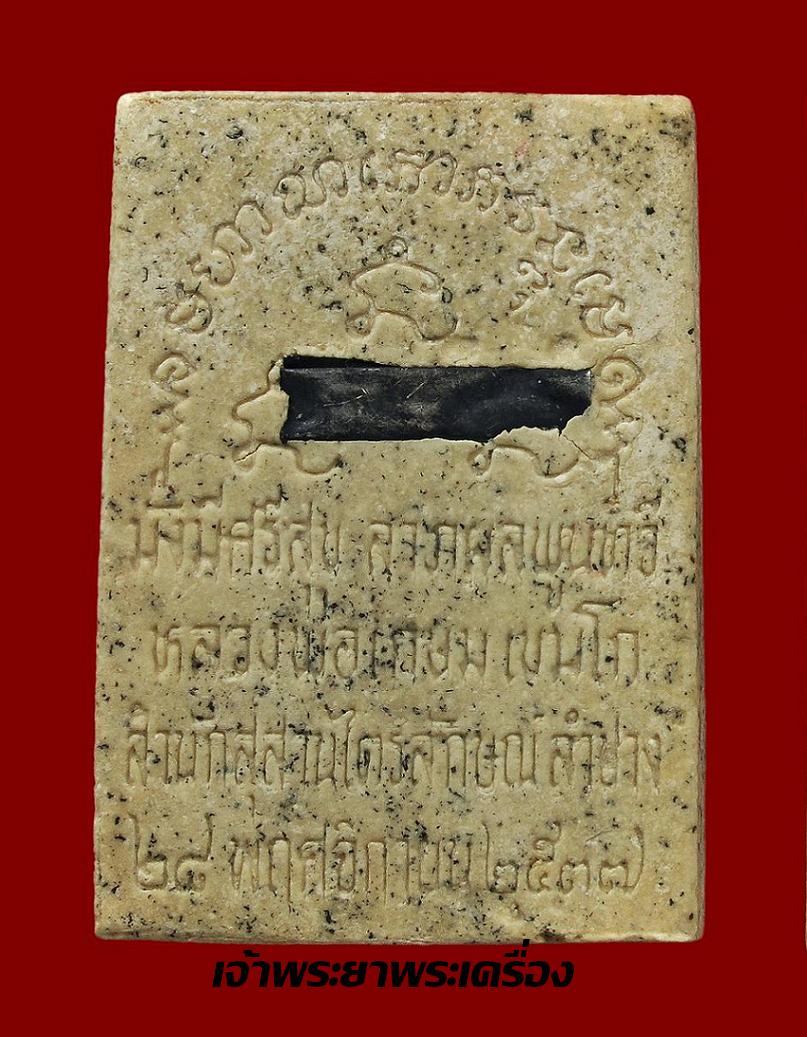 มั่งมีศรีสุข ลาภผลพูนทวี
หลวงพ่อเกษม เขมโก
สำนักสุสานไตรลักษณ์ ลำปาง
๒๘ พฤศจิกายน ๒๕๓๗
เจ้าพระยาพระเครื่อง